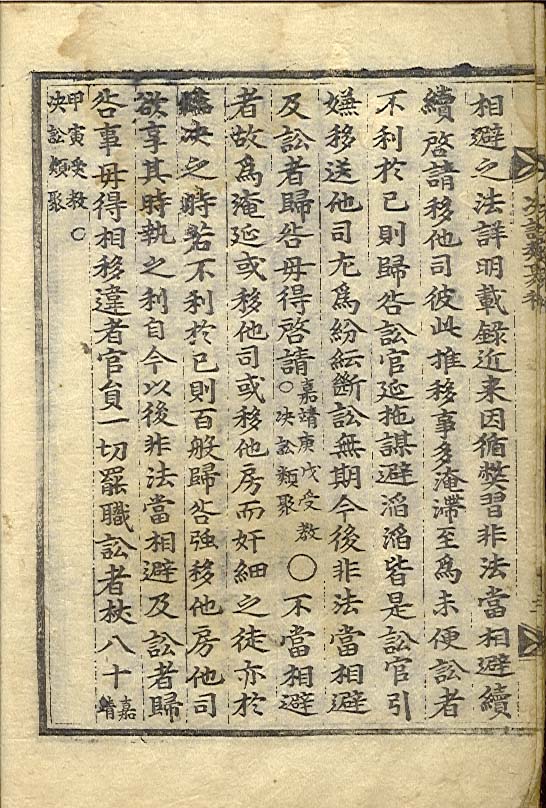 相避之法詳明載錄近来因循弊習非法當相避續
續啓請移他司彼此推移事多淹滯至爲未便訟者
不利於已則歸咎訟官延拖謀避滔滔皆是訟官引
嫌移送他司尤爲紛紜斷訟無期今後非法當相避
及訟者歸咎毋得啓請○嘉靖庚戌受教決訟類聚○不當相避
者故爲淹延或移他司或移他房而奸細之徒亦於
決之時若不利於已則百般歸咎强移他房他司
欲享其時執之利自今以後非法當相避及訟者歸
咎事毋得相移違者官員一切罷職訟者杖八十嘉靖
甲寅受教決訟類聚○